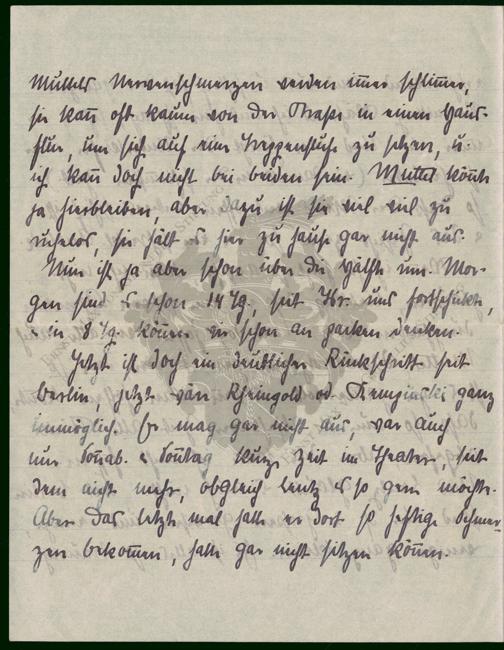 Mutters Nervenschmerzen werden imer schlimer,
sie kan̄ oft kaum von der Straße in einen Haus-
flur, um sich auf eine Treppenstufe zu setzen, u.
ich kan̄ doch nicht bei beiden sein. Mutter könnte
ja hierbleiben, aber dazu ist sie viel viel zu
ruhelos, sie hält es hier zu Hause gar nicht aus.
Nun ist ja aber schon über die Hälfte um. Mor-
gen sind es schon 14 Tg., seit Ihr uns fortschicktet,
u. in 8 Tg. können wir schon an packen denken.
Jetzt ist doch ein deutlicher Rückschritt seit
Berlin, jetzt wäre Rheingold od. Kempinski ganz
unmöglich. Er mag gar nicht aus, war auch
nur Son̄ab. u. Son̄tag kurze Zeit im Theater, seit
dem nicht mehr, obgleich er so gern möchte.
Aber das letzte mal hatte er dort so heftige Schmer-
zen bekom̄en, hatte gar nicht sitzen kön̄en.